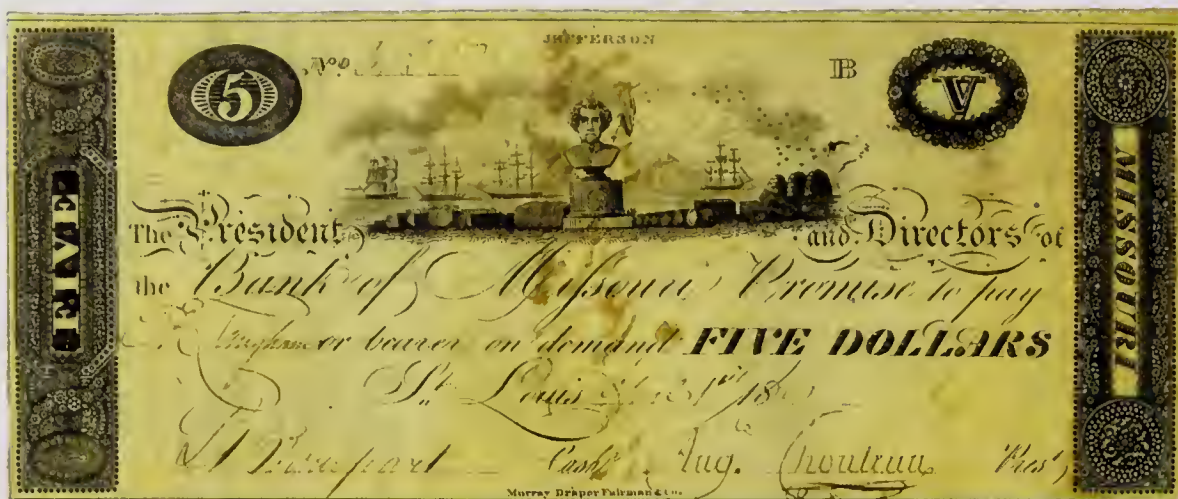 JEFFERSON
5 No. B V
FIVE
MISSOURI
The President and Directors of
the Bank of Missouri Promise to pay
or bearer on demand FIVE DOLLARS
St. Louis 18
Cashr. Aug. Chouteau Prest.
Murray Draper Fairman & Co.